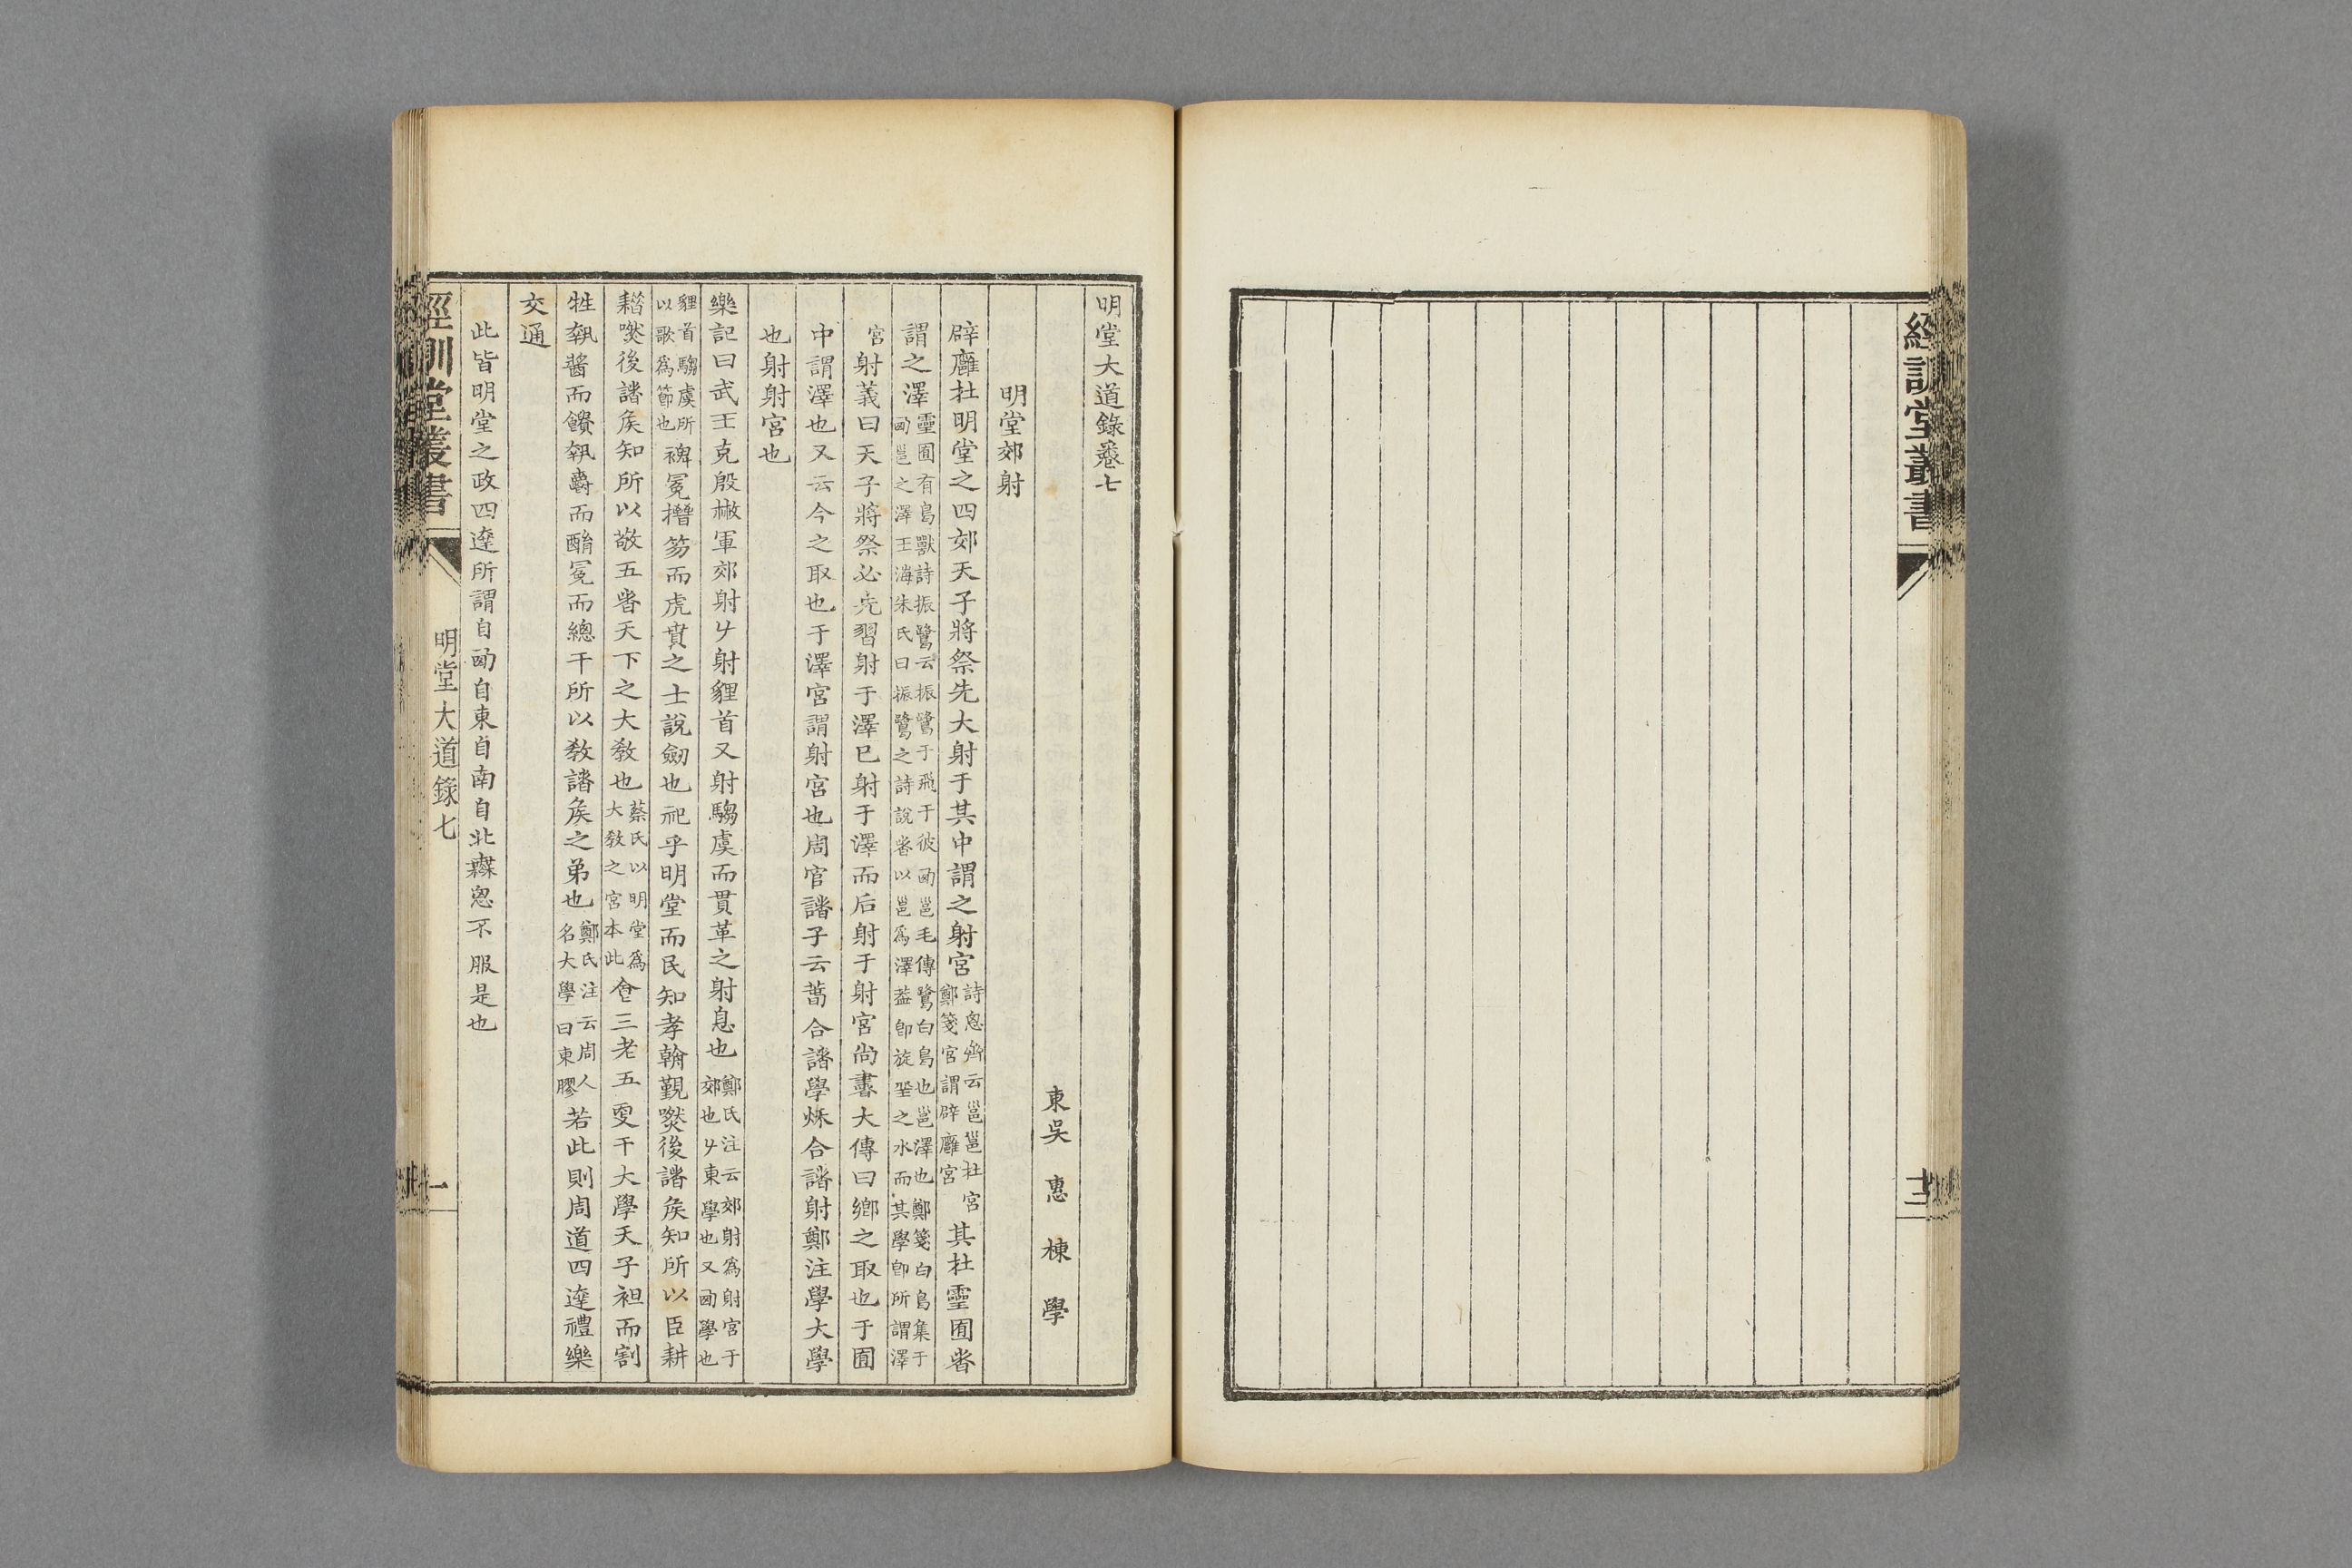 經訓堂叢書
明堂大道錄卷七
東吳惠棟學
明堂郊射
辟廱在明堂之四郊天子將祭先大射于其中謂之射宮詩思齊云邕邕在宮鄭箋宮謂辟廱宮其在靈囿者
謂之澤靈囿有鳥獸詩振鷺云振鷺于飛于彼㢴邕毛傳鷺白鳥也邕澤也鄭箋白鳥集于㢴邕之澤王海朱氏曰振鷺之詩說者以邕爲澤葢卽旋丘之水而其學卽所謂澤
宮射義曰天子將祭必先習射于澤已射于澤而后射于射宮尚書大傳曰鄉之取也于囿
中謂澤也又云今之取也于澤宮謂射宮也周官諸子云萅合諸學秌合諸射鄭注學大學
也射射宮也
樂記曰武王克殷㪚軍郊射𠂇射貍首又射騶虞而貫革之射息也鄭氏注云郊射爲射宮于郊也𠂇東學也又㢴學也
貍首騶虞所以歌爲節也裨冕搢笏而虎賁之士說劒也祀乎明堂而民知孝翰覲㷼後諸矦知所以臣耕
耤㷼後諸矦知所以敬五者天下之大教也蔡氏以明堂爲大教之宮本此食三老五叟于大學天子袒而割
牲執醬而饋執爵而酳冕而總干所以教諸矦之弟也鄭氏注云周人名大學曰東膠若此則周道四達禮樂
交通
此皆明堂之政四達所謂自㢴自東自南自北無思不服是也
經訓堂叢書
明堂大道錄七
一